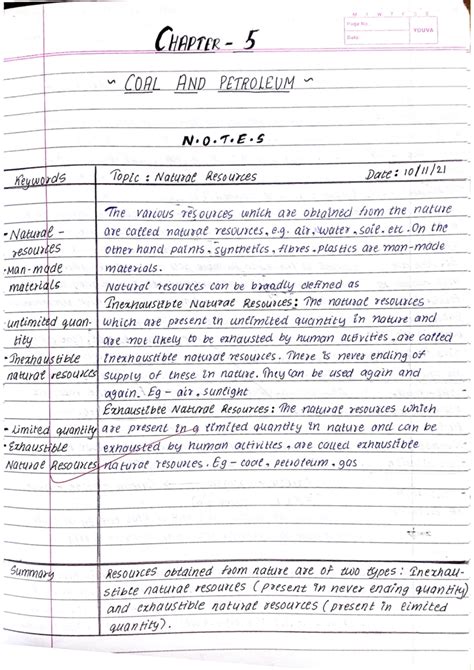 M T W T F S S
Page No.:
Date:
YOUVA
CHAPTER - 5
~ COAL AND PETROLEUM ~
N.O.T.E.S
Keywords
Topic : Natural Resources
Date: 10/11/21
The various resources which are obtained from the nature
• Natural - are called natural resources, e.g. air, water, soil, etc. On the
resources other hand paints, synthetics, fibres, plastics are man-made
• Man-made materials.
materials Natural resources can be broadly defined as
Inexhaustible Natural Resources: The natural resources
unlimited quan- which are present in unlimited quantity in nature and
tity are not likely to be exhausted by human activities, are called
• Inexhaustible inexhaustible natural resources. There is never ending of
natural resources supply of these in nature. They can be used again and
again. Eg - air, sunlight
Exhaustible Natural Resources: The natural resources which
• Limited quantity are present in a limited quantity in nature and can be
• Exhaustible exhausted by human activities, are called exhaustible
Natural Resources natural resources. Eg - coal, petroleum, gas
Summary Resources obtained from nature are of two types: Inexhau-
stible natural resources (present in never ending quantity)
and exhaustible natural resources (present in limited
quantity).